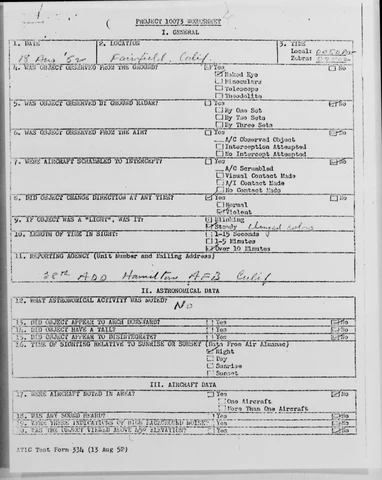 PROJECT 10073 WORKSHEET
I. GENERAL
1. DATE 2. LOCATION 3. TIME
18 Aug '52 Fairfield, Calif Local:
Zebra:
4. WAS OBJECT OBSERVED FROM THE GROUND? Yes No
Naked Eye
Binoculars
Telescope
Theodolite
5. WAS OBJECT OBSERVED BY GROUND RADAR? Yes No
By One Set
By Two Sets
By Three Sets
6. WAS OBJECT OBSERVED FROM THE AIR? Yes No
A/C Observed Object
Interception Attempted
No Intercept Attempted
7. WERE AIRCRAFT SCRAMBLED TO INTERCEPT? Yes No
A/C Scrambled
Visual Contact Made
A/I Contact Made
No Contact Made
8. DID OBJECT CHANGE DIRECTION AT ANY TIME? Yes No
Normal
Violent
9. IF OBJECT WAS A "LIGHT", WAS IT: Blinking
Steady changed colors
10. LENGTH OF TIME IN SIGHT: 1-15 Seconds
1-5 Minutes
Over 10 Minutes
11. REPORTING AGENCY (Unit Number and Mailing Address)
28th ADD Hamilton AFB Calif
II. ASTRONOMICAL DATA
12. WHAT ASTRONOMICAL ACTIVITY WAS NOTED?
No
13. DID OBJECT APPEAR TO ARCH DOWNWARD? Yes No
14. DID OBJECT HAVE A TAIL? Yes No
15. DID OBJECT APPEAR TO DISINTEGRATE? Yes No
16. TIME OF SIGHTING RELATIVE TO SUNRISE OR SUNSET (Data From Air Almanac)
Night
Day
Sunrise
Sunset
III. AIRCRAFT DATA
17. WERE AIRCRAFT NOTED IN AREA? Yes No
One Aircraft
More Than One Aircraft
18. WAS ANY SOUND HEARD? Yes No
19. WERE THERE INDICATIONS OF HIGH BACKGROUND NOISE? Yes No
20. WAS THE OBJECT VIEWED ABOVE 45° ELEVATION? Yes No
ATIC Test Form 334 (13 Aug 52)